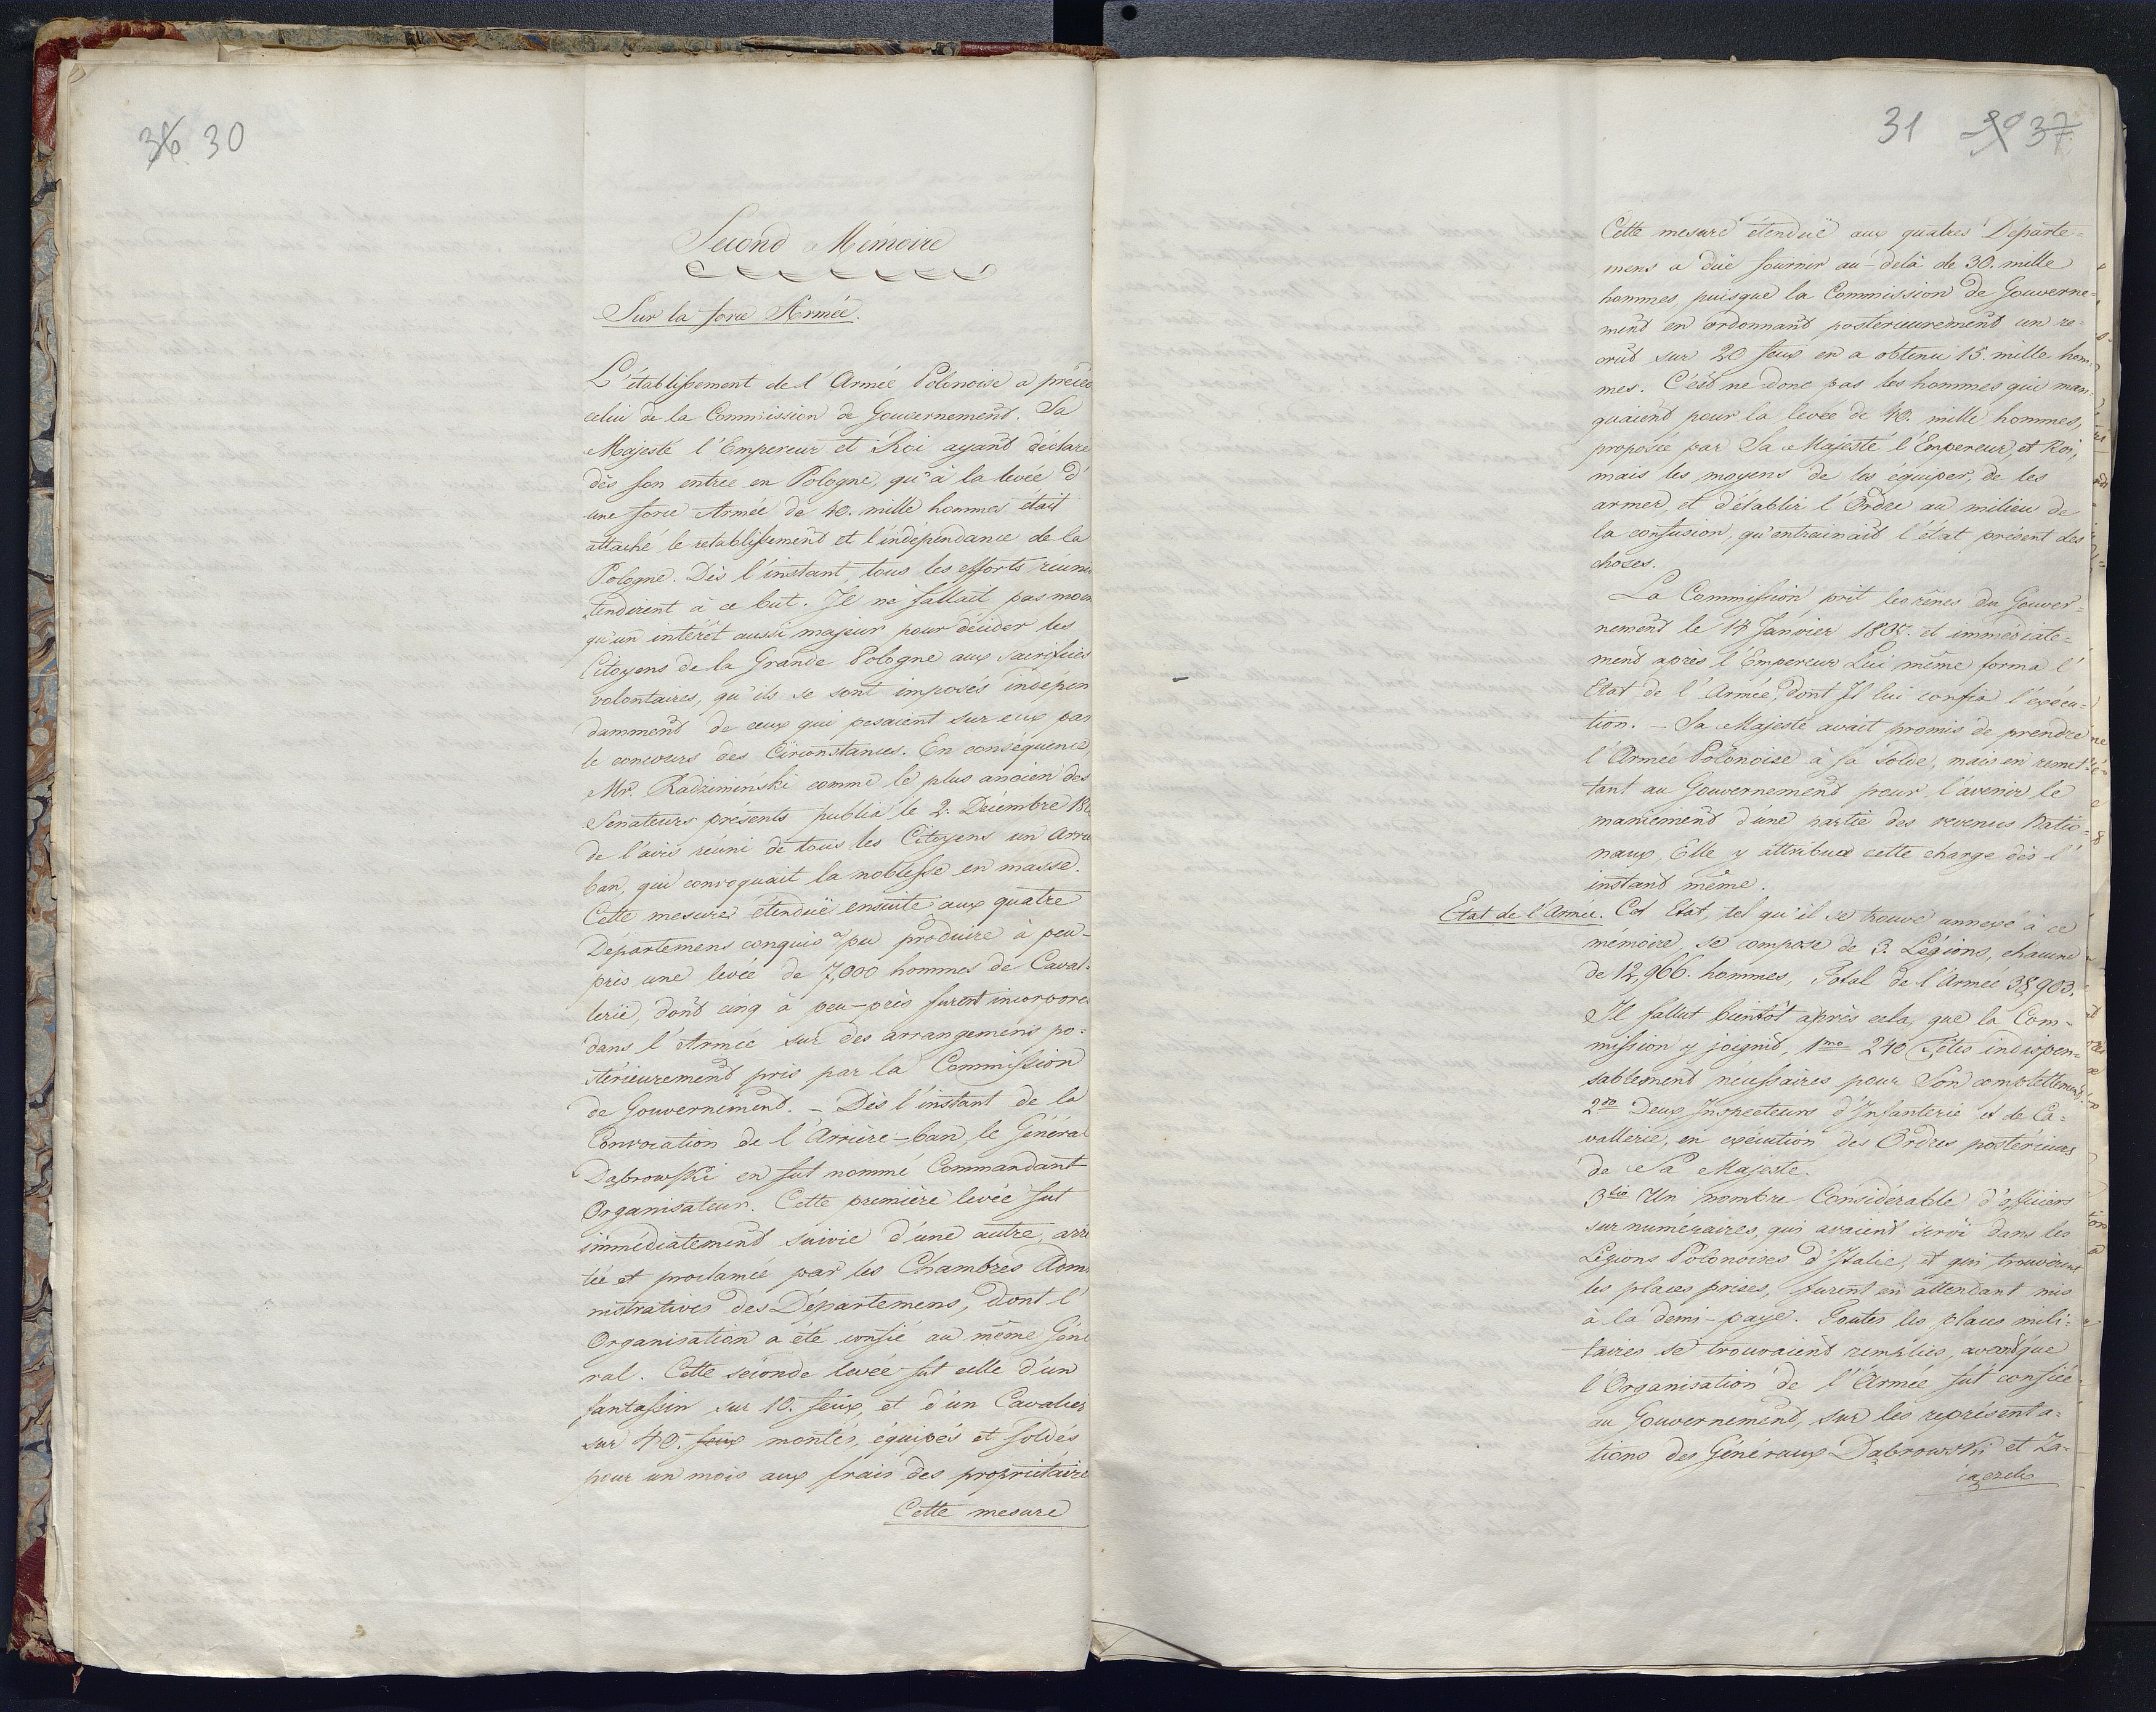 36 30
Second Mémoire
Sur la force Armée.
L'établissement de l'Armée Polonoise a précé
celui de la Commission de Gouvernement. Sa
Majesté l'Empereur et Roi ayant déclaré
dès son entrée en Pologne, qu'à la levée d'
une force Armée de 40. mille hommes était
attaché le retablissement et l'indépendance de la
Pologne. Dès l'instant, tous les efforts réunis
tendirent à ce but. Il ne fallait pas moin
qu'un intérêt aussi majeur pour décider les
Citoyens de la Grande Pologne aux sacrifices
volontaires, qu'ils se sont imposés indépen
damment de ceux qui pesaient sur eux par
le concours des Circonstances. En conséquence,
Mr. Radzimiński comme le plus ancien des
Senateurs présents publia le 2. Décembre 180
de l'avis réuni de tous les Citoyens un Arrie
ban, qui convoquait la noblesse en masse.
Cette mesure étenduë ensuite aux quatre
Départemens conquis a pu produire à peu-
près une levée de 7,000 hommes de Caval-
lerie, dont cinq à peu-près furent incorpore
dans l'Armée sur des arrangemens po-
stérieurement pris par la Commission
de Gouvernement. - Dès l'instant de la
Convocation de l'Arrière-ban, le Général
Dąbrowski en fut nommé Commandant
Organisateur. Cette première levée fut
immédiatement suivie d'une autre, arrê
tée et proclamée par les Chambres Admi
nistratives des Départemens, dont l'
Organisation a été confié au même Géné
ral. Cette seconde levée fut celle d'un
fantassin sur 10. feux, et d'un Cavalier
sur 40. feux montés, équipés et soldés
pour un mois aux frais des proprietaire
Cette mesure
31 37
Cette mesure étenduë aux quatres Départe=
mens a duë fournir au-delà de 30. mille
hommes, puisque la Commission de Gouverne=
ment en ordonnant postérieurement un re=
crût sur 20 feux en a obtenu 15. mille hom-
mes. C'est ne donc pas les hommes qui man-
quaient pour la levée de 40. mille hommes,
proposée par Sa Majesté l'Empereur, et Roi,
mais les moyens de les équiper, de les
armer, et d'établir l'Ordre au milieu de
la confusion, qu'entrainait l'état présent des
choses.
La Commission prit les rênes du Gouver=
nement le 14 Janvier 1807. et immédiate=
ment après l'Empereur Lui même forma l'
Etat de l'Armée, dont Il lui confia l'exécu=
tion. - Sa Majesté avait promis de prendre
l'Armée Polonoise à sa solde, mais en remet=
tant au Gouvernement pour l'avenir le
maniement d'une partie des revenus Natio=
naux, Elle y attribua cette charge dès l'
instant même.
Etat de l'Armée. Cet Etat, tel qu'il se trouve annexé à ce
mémoire, se compose de 3. Légions, chacune
de 12,966. hommes, Total de l'Armée 38,903.
Il fallut bientôt après cela, que la Com-
mission y joignit, 1mo 240 Têtes indispen=
sablement necessaires pour Son complettement.
2do Deux Inspecteurs d'Infanterie et de Ca=
vallerie, en exécution des Ordres postérieurs
de Sa Majesté.
3tio Un nombre Considérable d'officiers
surnuméraires, qui avaient servi dans les
Légions Polonoises d'Italie, et qui trouvèrent
les places prises, furent en attendant mis
à la demi-paye. Toutes les places mili=
taires se trouvaient remplies, avant que
l'Organisation de l'Armée fut confiée
au Gouvernement, sur les représenta=
tions des Généraux Dąbrowski et Za-
iączek